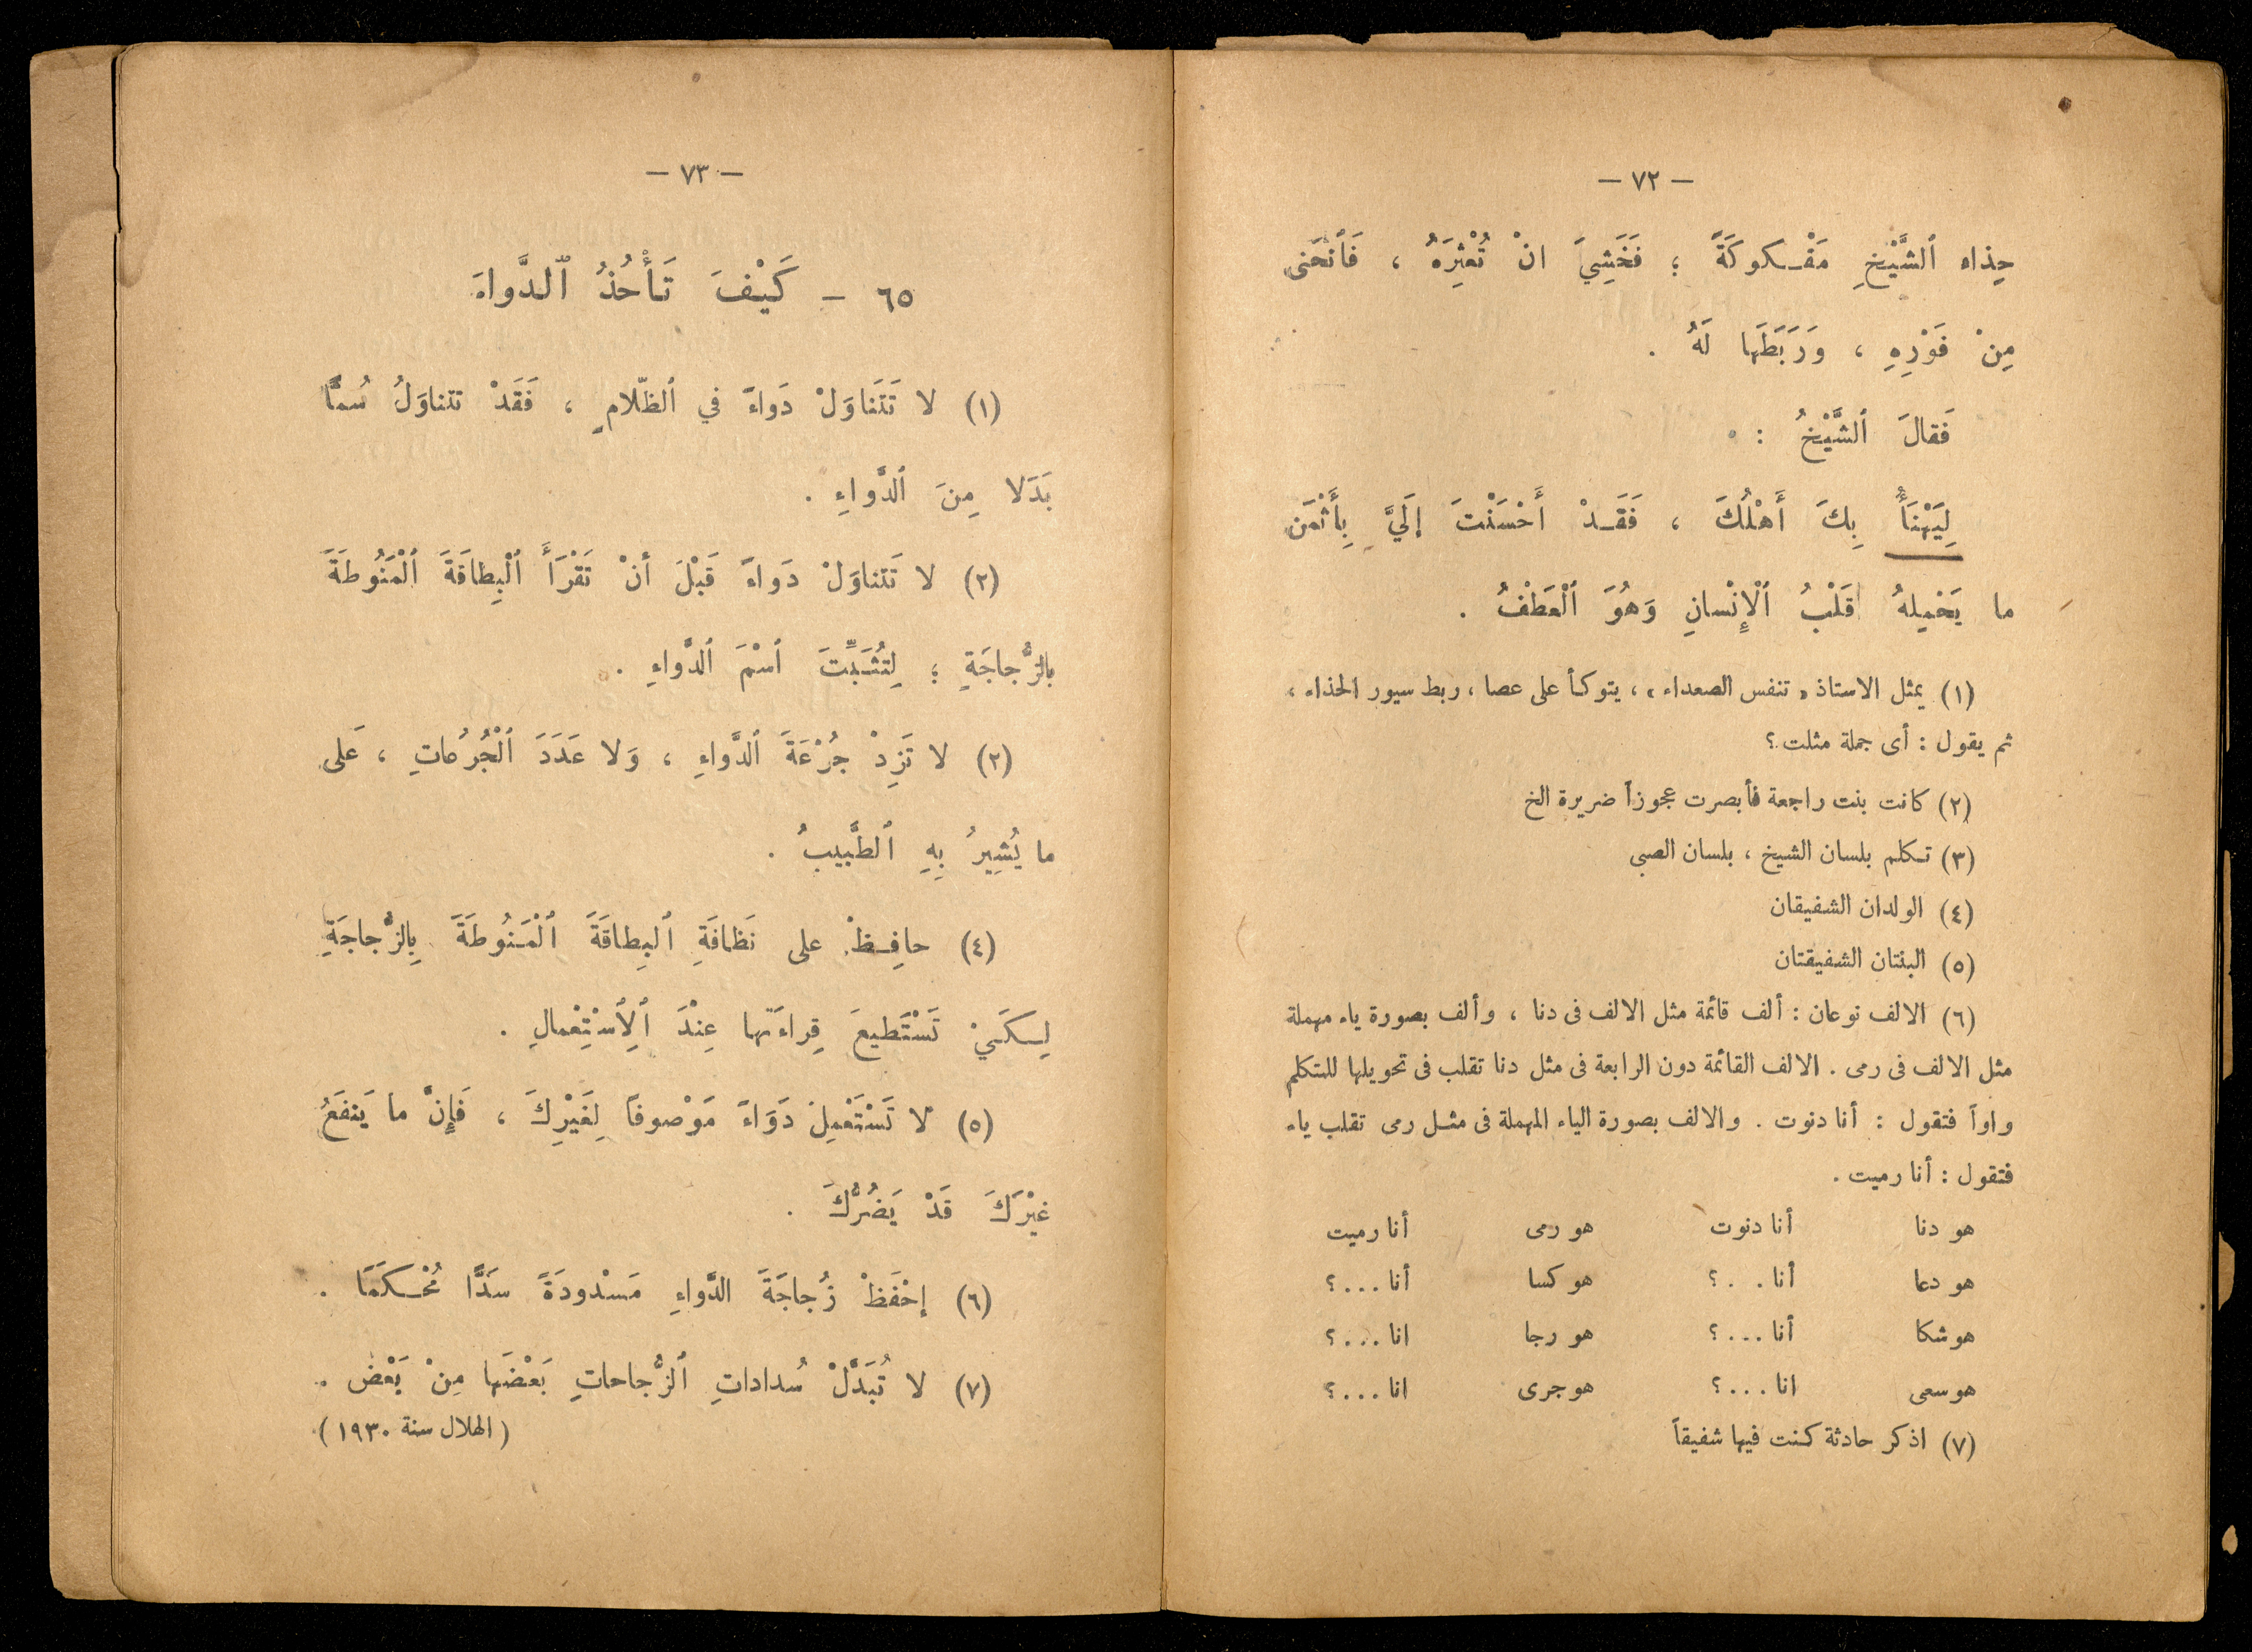 — ٧٢ —
حِذاء ٱلشَّيْخِ مَفْكوكَةً ؛ فَخَشِيَ انْ تُعْثِرَهُ ، فَٱنْحَنى
مِنْ فَوْرِهِ ، وَرَبَطَها لَهُ .
فَقالَ ٱلشَّيْخُ :
لِيَهْنَأْ بِكَ أَهْلُكَ ، فَقَدْ أَحْسَنْتَ إلَيَّ بِأَثْمَنِ
ما يَحْمِلهُ قَلْبُ ٱلْإِنْسانِ وَهُوَ ٱلْعَطْفُ .
(١) يمثل الاستاذ « تنفس الصعداء » ، يتوكأ على عصا ، ربط سيور الحذاء ،
ثم يقول : أى جملة مثلت ؟
(٢) كانت بنت راجعة فأبصرت عجوزاً ضريرة الخ
(٣) تكلم بلسان الشيخ ، بلسان الصبى
(٤) الولدان الشفيقان
(٥) البنتان الشفيقتان
(٦) الالف نوعان : ألف قائمة مثل الالف فى دنا ، وألف بصورة ياء مهملة
مثل الالف فى رمى . الالف القائمة دون الرابعة فى مثل دنا تقلب فى تحويلها للمتكلم
واواً فتقول : أنا دنوت . والالف بصورة الياء المهملة فى مثل رمى تقلب ياء
فتقول : أنا رميت .
هو دنا أنا دنوت هو رمى أنا رميت
هو دعا أنا . . ؟ هو كسا أنا . . . ؟
هو شكا أنا . . . ؟ هو رجا انا . . . ؟
هو سعى انا . . . ؟ هو جرى انا . . . ؟
(٧) اذكر حادثة كنت فيها شفيقاً
— ٧٣ —
٦٥ – كَيْفَ تَأْخُذُ ٱلدَّواءَ
(١) لا تَتَناوَلْ دَواءً في ٱلظّلامِ ، فَقَدْ تتناوَلُ سُمًّا
بَدَلا مِنَ ٱلدَّواءِ .
(٢) لا تَتناوَلْ دَواءً قَبْلَ أنْ تَقْرَأَ ٱلْبِطاقَةَ ٱلْمَنُوطَةَ
بالزُّجاجَةِ ؛ لِتُثَبِّتَ ٱسْمَ ٱلدَّواءِ .
(٢) لا تَزِدْ جُرْعَةَ ٱلدَّواءِ ، وَلا عَدَدَ ٱلْجُرُعاتِ ، عَلى
ما يُشِيرُ بِهِ ٱلطَّبيبُ .
(٤) حافِظْ على نَظافَةِ ٱلبِطاقَةَ ٱلْمَنُوطَةَ بِالزُّجاجَةِ
لِكَيْ تَسْتَطيعَ قِراءَتَها عِنْدَ ٱلِٱسْتِعْمالِ .
(٥) لا تَسْتَعْمِلْ دَوَاءً مَوْصوفاً لِغَيْرِكَ ، فَإِنَّ ما يَنفَعُ
غيْرَكَ قَدْ يَضُرُّكَ .
(٦) إحْفَظْ زُجاجَةَ الدَّواءِ مَسْدودَةً سَدًّا مُحْكَمًا .
(٧) لا تُبَدِّلْ سُداداتِ ٱلزُّجاحاتِ بَعْضَها مِنْ بَعْض .
( الهلال سنة ١٩٣٠ )